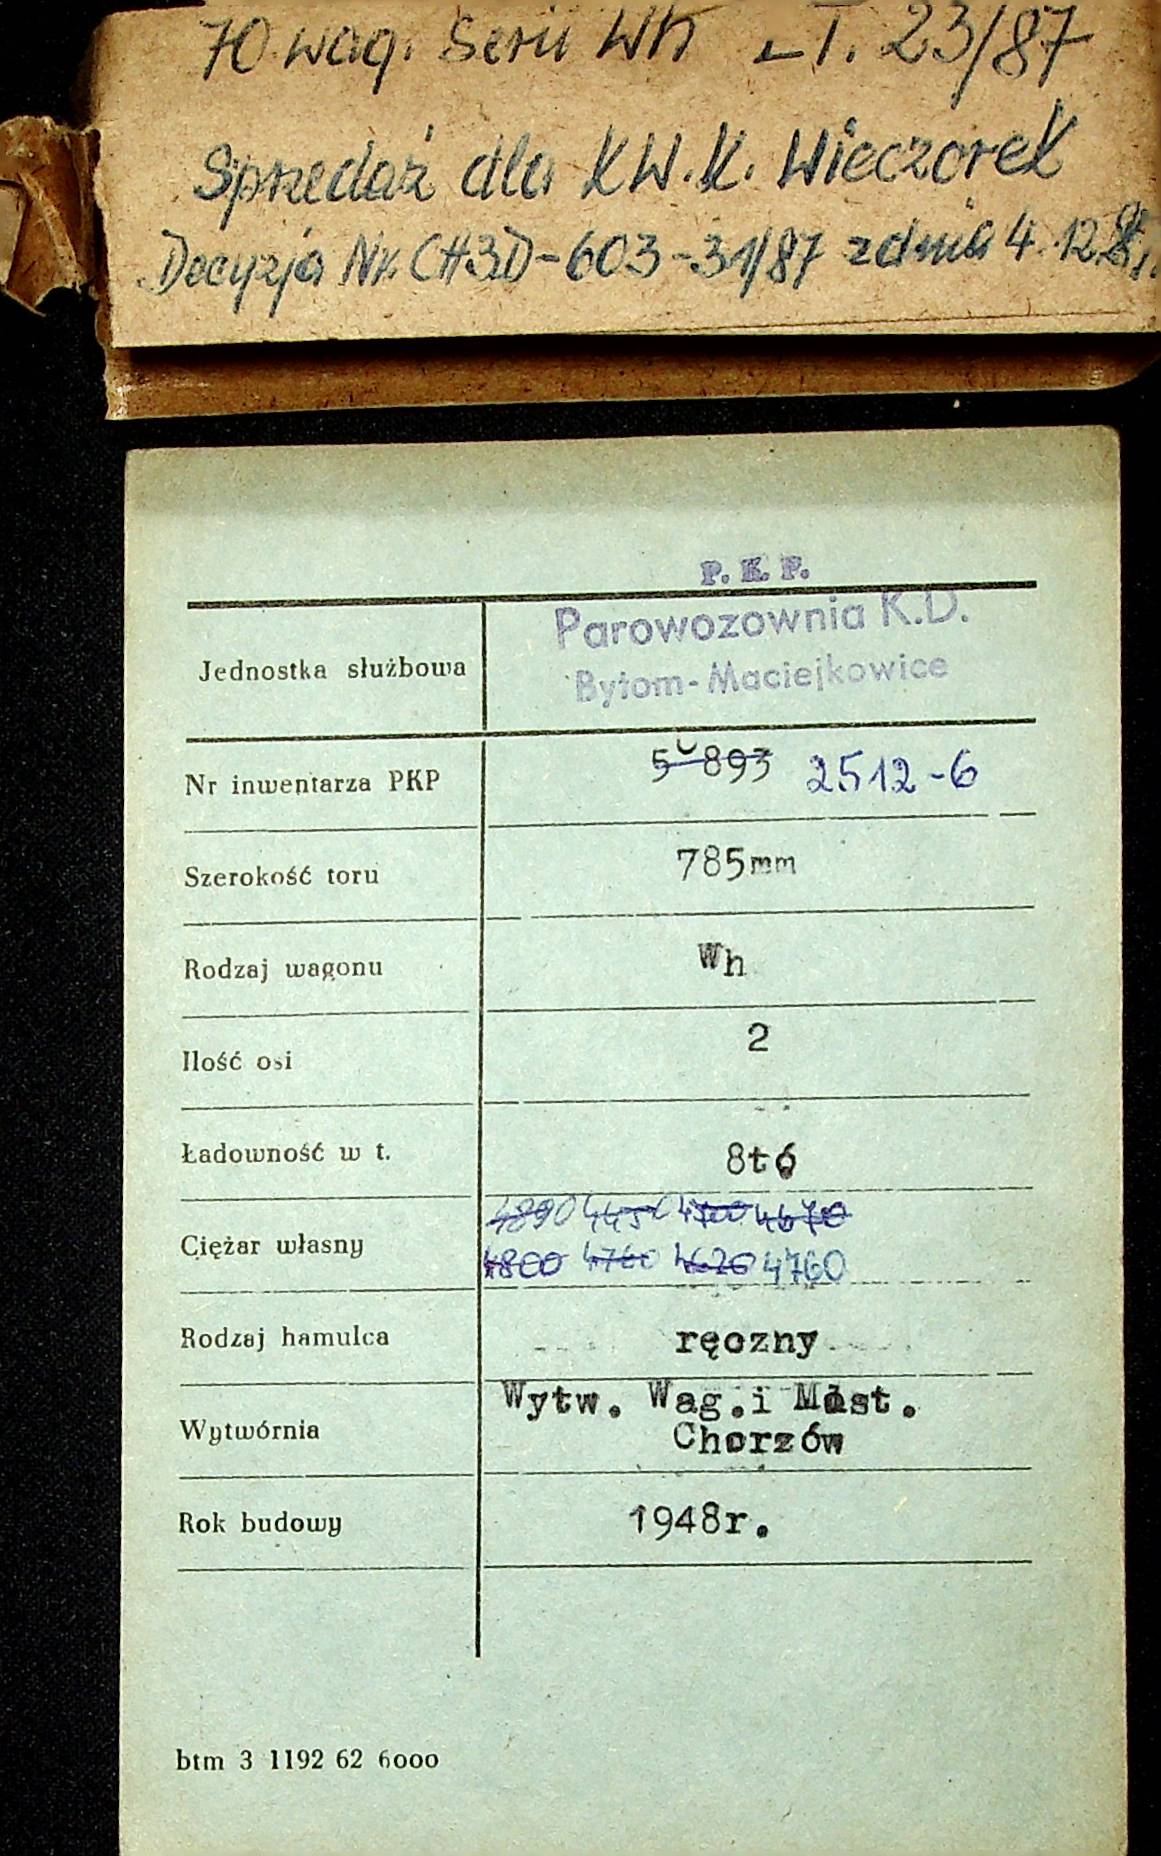 70 wag. Serii Wh LT. 23/87
Sprzedaż dla KW.K. Wieczorek
Decyzja Nr. CH3D-603-31/87 z dnia 4.12.
P. K. P.
Parowozownia K.D.
Bytom-Maciejkowice
Jednostka służbowa
Nr inwentarza PKP 893 2512-6
Szerokość toru 785mm
Rodzaj wagonu Wh
Ilość osi 2
Ładowność w t. 8tó
4890 4450 4670
Ciężar własny 4800 4760 4620 4760
Rodzaj hamulca ręczny
Wytwórnia Wytw. Wag.i Most.
Chorzów
Rok budowy 1948r.
btm 3 1192 62 6000